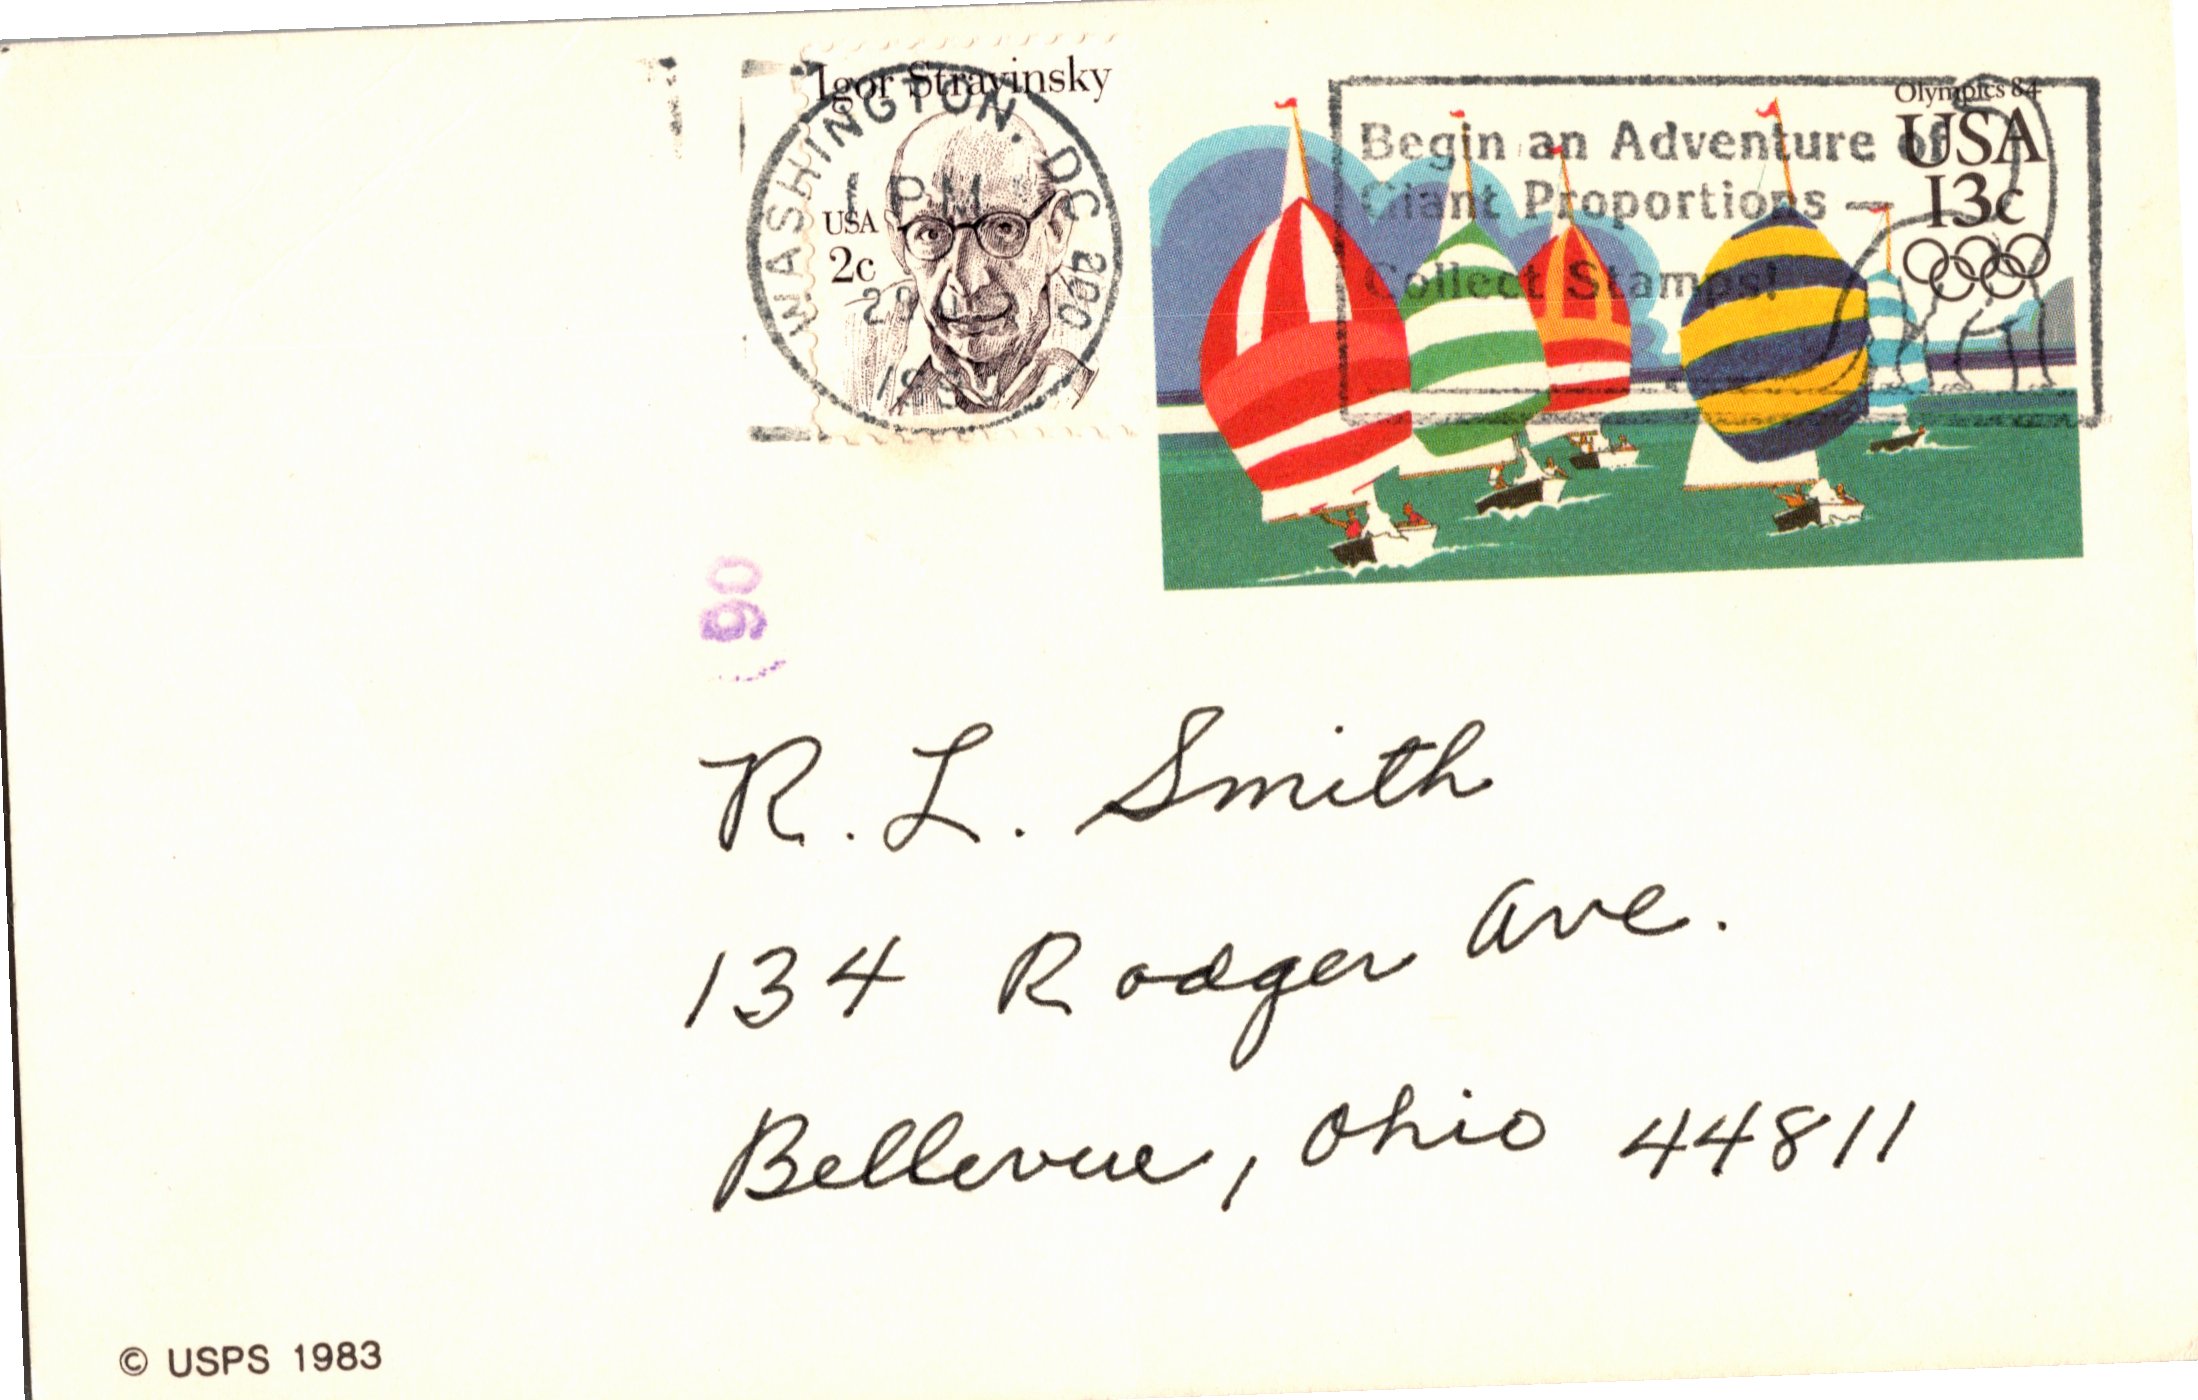 Igor Stravinsky
USA
2c
WASHINGTON, DC 200
PM
Olympics 84
USA
13c
Begin an Adventure of
Giant Proportions —
Collect Stamps!
90
R. L. Smith
134 Rodger Ave.
Bellevue, Ohio 44811
© USPS 1983